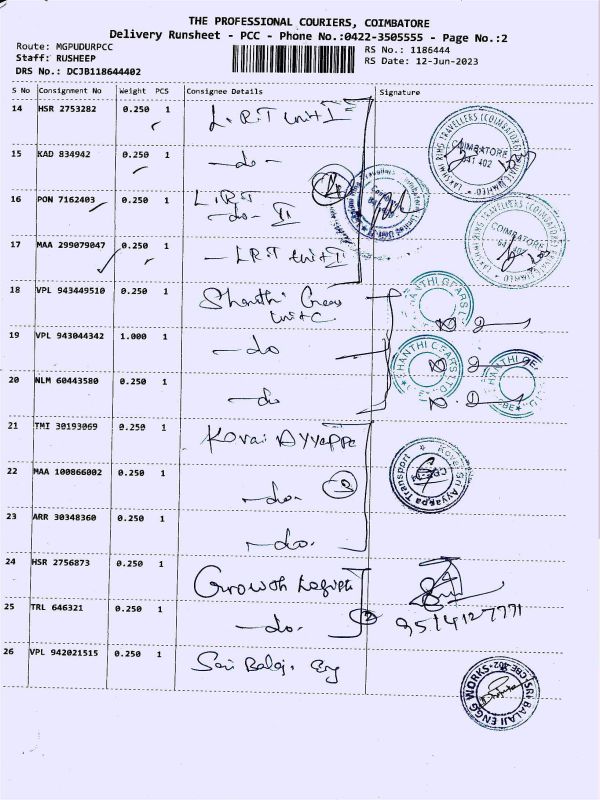 THE PROFESSIONAL COURIERS, COIMBATORE
Delivery Runsheet - PCC - Phone No.:0422-3505555 - Page No.:2
Route: MGPUDURPCC
Staff: RUSHEEP
DRS No.: DCJB118644402
RS No.: 1186444
RS Date: 12-Jun-2023
S No Consignment No Weight PCS Consignee Details Signature
14 HSR 2753282 0.250 1 L.R.T unit I
15 KAD 834942 0.250 1 -do-
16 PON 7162403 0.250 1 L.R.T
-do- VI
17 MAA 299079047 0.250 1 - LRT unit II
18 VPL 943449510 0.250 1 Shanthi Gears
unit C
19 VPL 943044342 1.000 1 -do
20 NLM 60443580 0.250 1 -do
21 TMI 30193069 0.250 1 Kovai Ayyappa
22 MAA 100866002 0.250 1 -do-
23 ARR 30348360 0.250 1 -do-
24 HSR 2756873 0.250 1 Growth
25 TRL 646321 0.250 1 -do-
9514127771
26 VPL 942021515 0.250 1 Sri Balaji Eng
LAKSHMI RING TRAVELLERS (COIMBATORE) PRIVATE LIMITED
COIMBATORE
641 402
LAKSHMI RING TRAVELLERS (COIMBATORE)
COIMBATORE
SHANTHI GEARS LTD
SHANTHI GEARS LTD
Kovai Sri Ayyappa Transport
SRI BALAJI ENGG WORKS
CBE